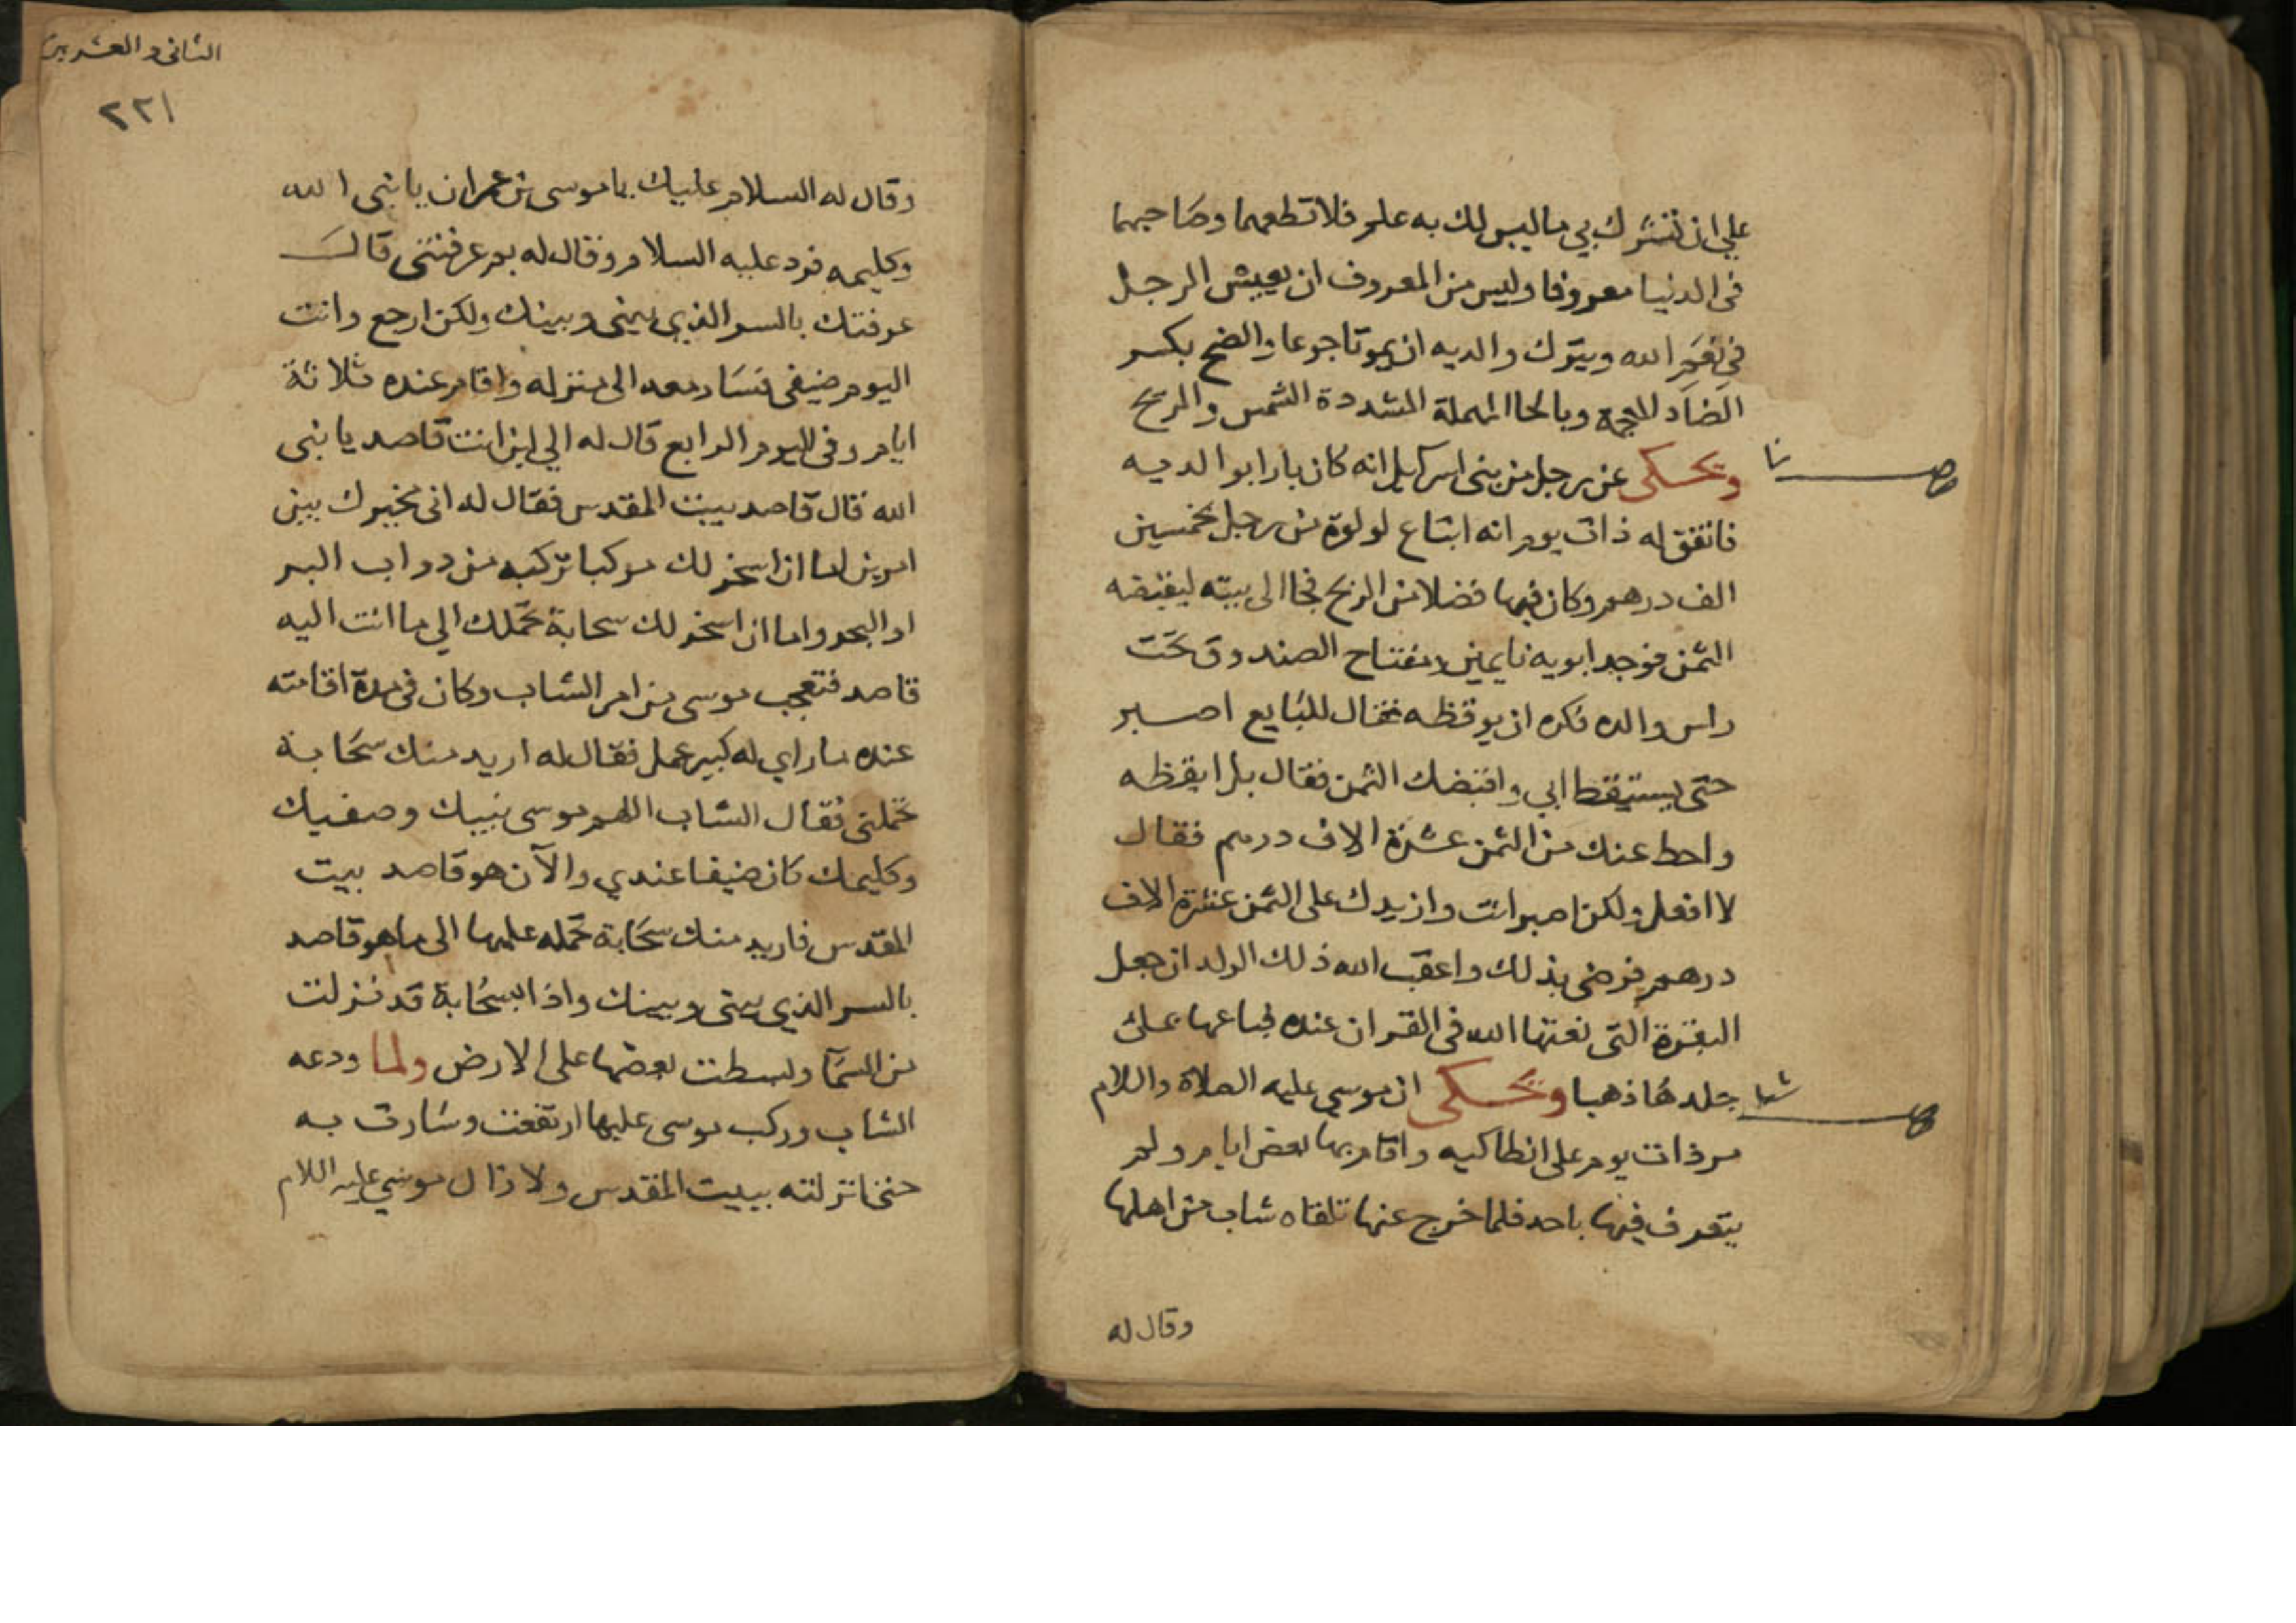 على ان تشرك بي ما ليس لك به علم فلا تطعهما وصاحبهما
في الدنيا معروفا وليس من المعروف ان يعيش الرجل
في نعم الله ويترك والديه ان يموتا جوعا والضح بكسر
الضاد المعجمة وبالحا المهملة المشددة الشمس والريح
ويحكى عن رجل من بني اسرايل انه كان بارا بوالديه
فاتفق له ذات يوم انه ابتاع لولوة من رجل بخمسين
الف درهم وكان فيها فضلا من الربح فجا الى بيته ليقبضه
الثمن فوجد ابويه نايمين ومفتاح الصندوق تحت
راس والده فكره ان يوقظه فقال للبايع اصبر
حتى يستيقظ ابي واقبضك الثمن فقال بل ايقظه
واحط عنك من الثمن عشرة الاف درهم فقال
لا افعل ولكن اصبر انت وازيدك على الثمن عشرة الاف
درهم فرضى بذلك واعقب الله ذلك الولد ان جعل
البقرة التي نعتها الله في القران عنده فباعها بملئ
جلدها ذهبا ويحكى ان موسى عليه الصلاة والسلام
مر ذات يوم على انطاكيه واقام بها بعض ايام ولم
يتعرف فيها باحد فلما خرج عنها تلقاه شاب من اهلها
وقال له
الثاني والعشرين
٢٢١
وقال له السلام عليك يا موسى بن عمران يا نبي الله
وكليمه فرد عليه السلام وقال له بم عرفتني قال
عرفتك بالسر الذي بيني وبينك ولكن ارجع وانت
اليوم ضيفي فسار معه الى منزله واقام عنده ثلاثة
ايام وفي اليوم الرابع قال له الي اين انت قاصد يا نبي
الله قال قاصد بيت المقدس فقال له اني مخيرك بين
امرين اما ان اسخر لك مركبا تركبه من دواب البر
او البحر واما ان اسخر لك سحابة تحملك الي ما انت اليه
قاصد فتعجب موسى من امر الشاب وكان في مدة اقامته
عنده ما راي له كبير عمل فقال له اريد منك سحابة
تحملني فقال الشاب اللهم موسى نبيك وصفيك
وكليمك كان ضيفا عندي والآن هو قاصد بيت
المقدس فاريد منك سحابة تحمله عليها الى ما هو قاصد
بالسر الذي بيني وبينك واذا بسحابة قد نزلت
من السمآ وبسطت بعضها على الارض ولما ودعه
الشاب وركب موسى عليها ارتفعت وسارت به
حتى انزلته ببيت المقدس ولا زال موسى عليه السلام